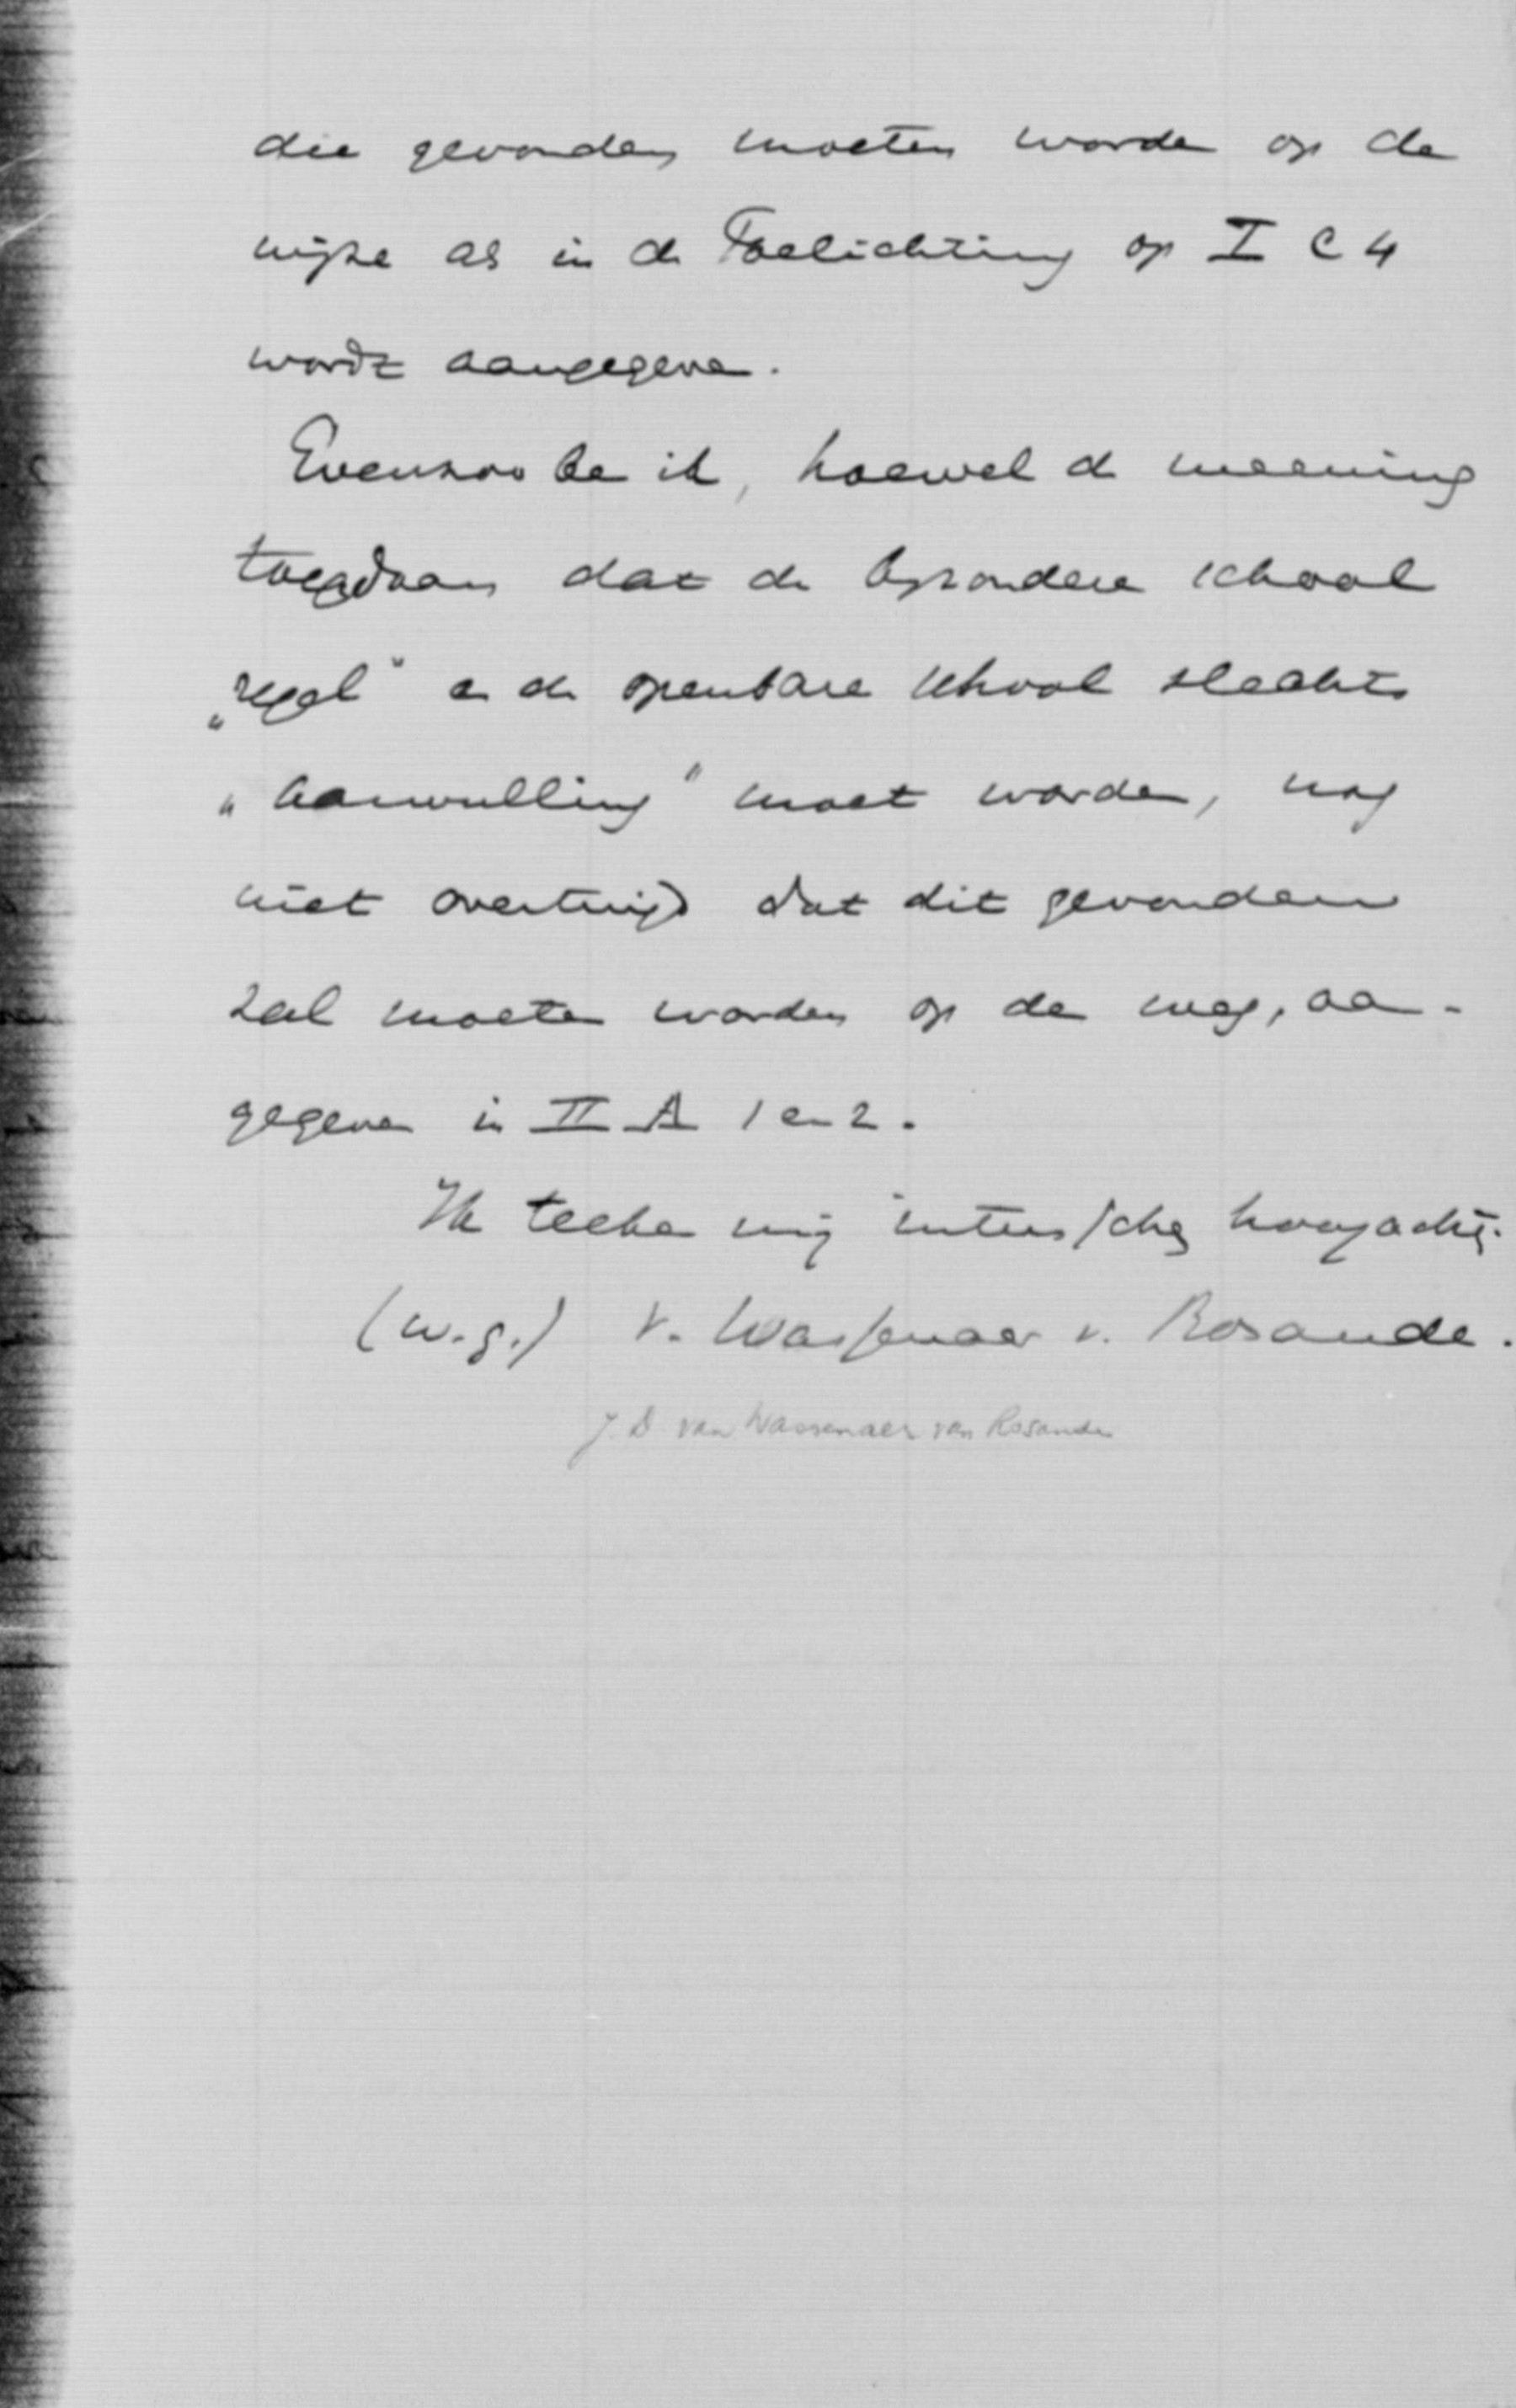 die gevonden moeten worden op de
wijze als in de Toelichting op I C 4
wordt aangegeven.
Evenzoo ben ik, hoewel de meening
toegedaan dat de byzondere school
„regel" en de openbare school slechts
„aanvulling" moet worden, nog
niet overtuigd dat dit gevonden
zal moeten worden op de weg, aan-
gegeven in II A 1 en 2.
Ik teeken mij intusschen hoogacht.
(w.g.) v. Wassenaer v. Rosande.
J. D. van Wassenaer van Rosande